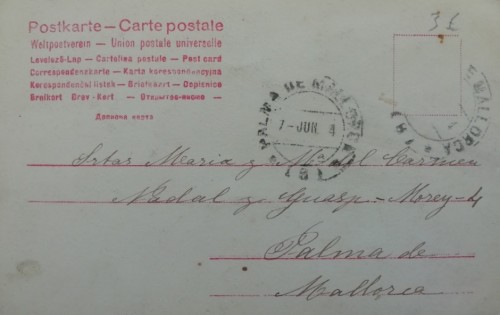 Postkarte — Carte postale
Weltpostverein — Union postale universelle
Levelező-Lap — Cartolina postale — Post card
Correspondenzkarte — Karta korespondencyjna
Korespondenční lístek — Briefkaart — Dopisnice
Brefkort Brev-Kort — Открытое письмо —
Дописна карта
3 £
PALMA DE MALLORCA
7-JUN 4
MALLORCA
Srtas Maria y M del Carmen
Nadal y Guasp - Morey-4
Palma de
Mallorca